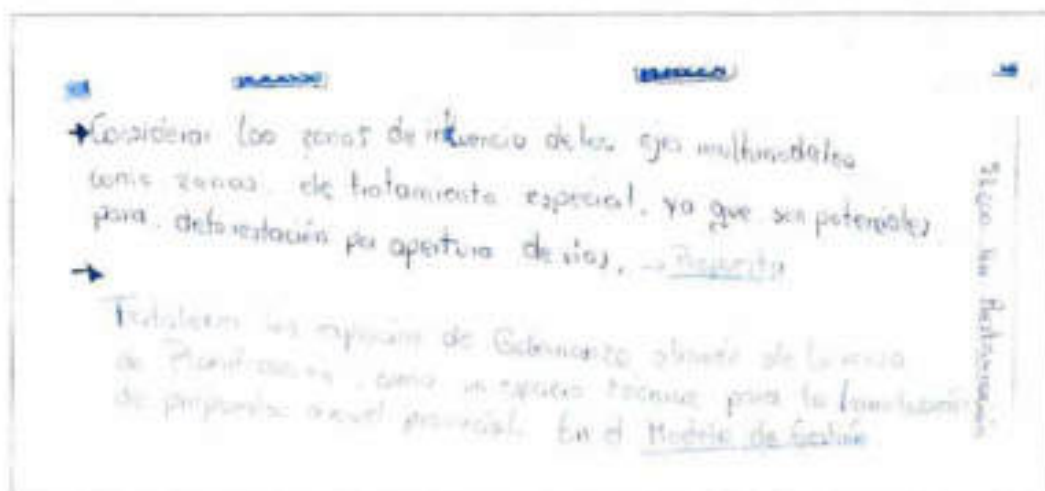 Considerar las zonas de influencia de los ejes multimodales
como zonas de tratamiento especial, ya que son potenciales
para deforestación por apertura de vías. → Propuesta
Fortalecer los espacios de Gobernanza através de la mesa
de Planificación, como un espacio técnico para la
de propuestas a nivel provincial. En el Modelo de Gestión